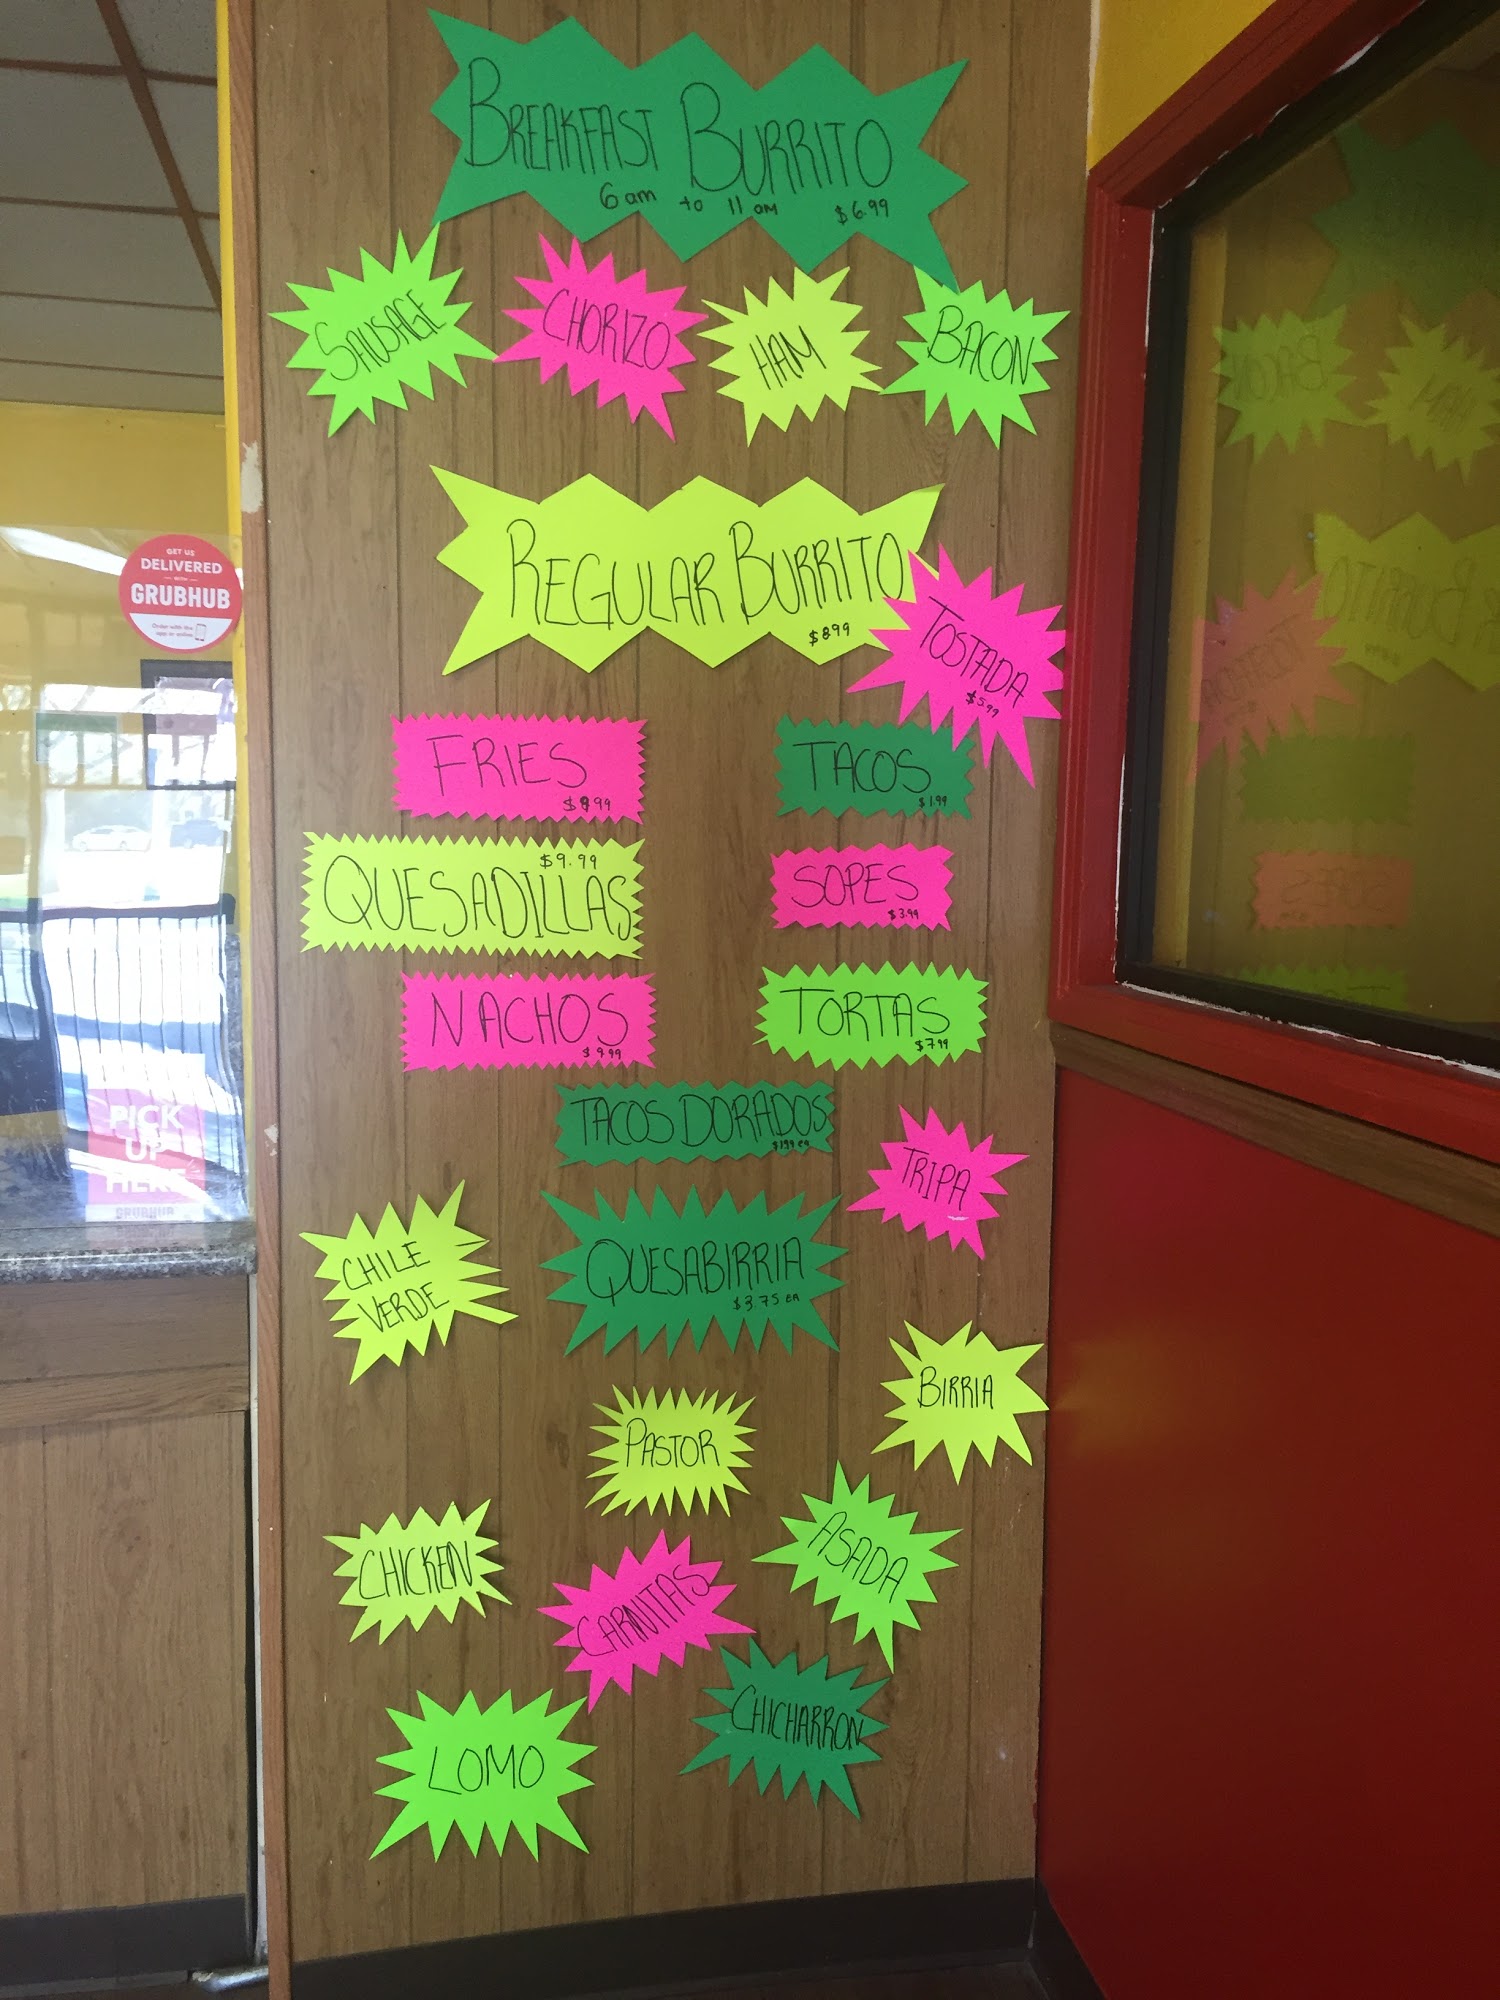 BREAKFAST BURRITO
6 am to 11 am $6.99
SAUSAGE
CHORIZO
HAM
BACON
REGULAR BURRITO
$8.99
TOSTADA
$5.99
FRIES
TACOS
$1.99
$9.99
QUESADILLAS
SOPES
$3.99
NACHOS
$9.99
TORTAS
$7.99
TACOS DORADOS
$1.99 ea
TRIPA
CHILE
VERDE
QUESABIRRIA
$3.75 EA
BIRRIA
PASTOR
CHICKEN
ASADA
CARNITAS
CHICHARRON
LOMO
GET US
DELIVERED
WITH
GRUBHUB
Order with the
app or online
PICK
UP
HERE
GRUBHUB